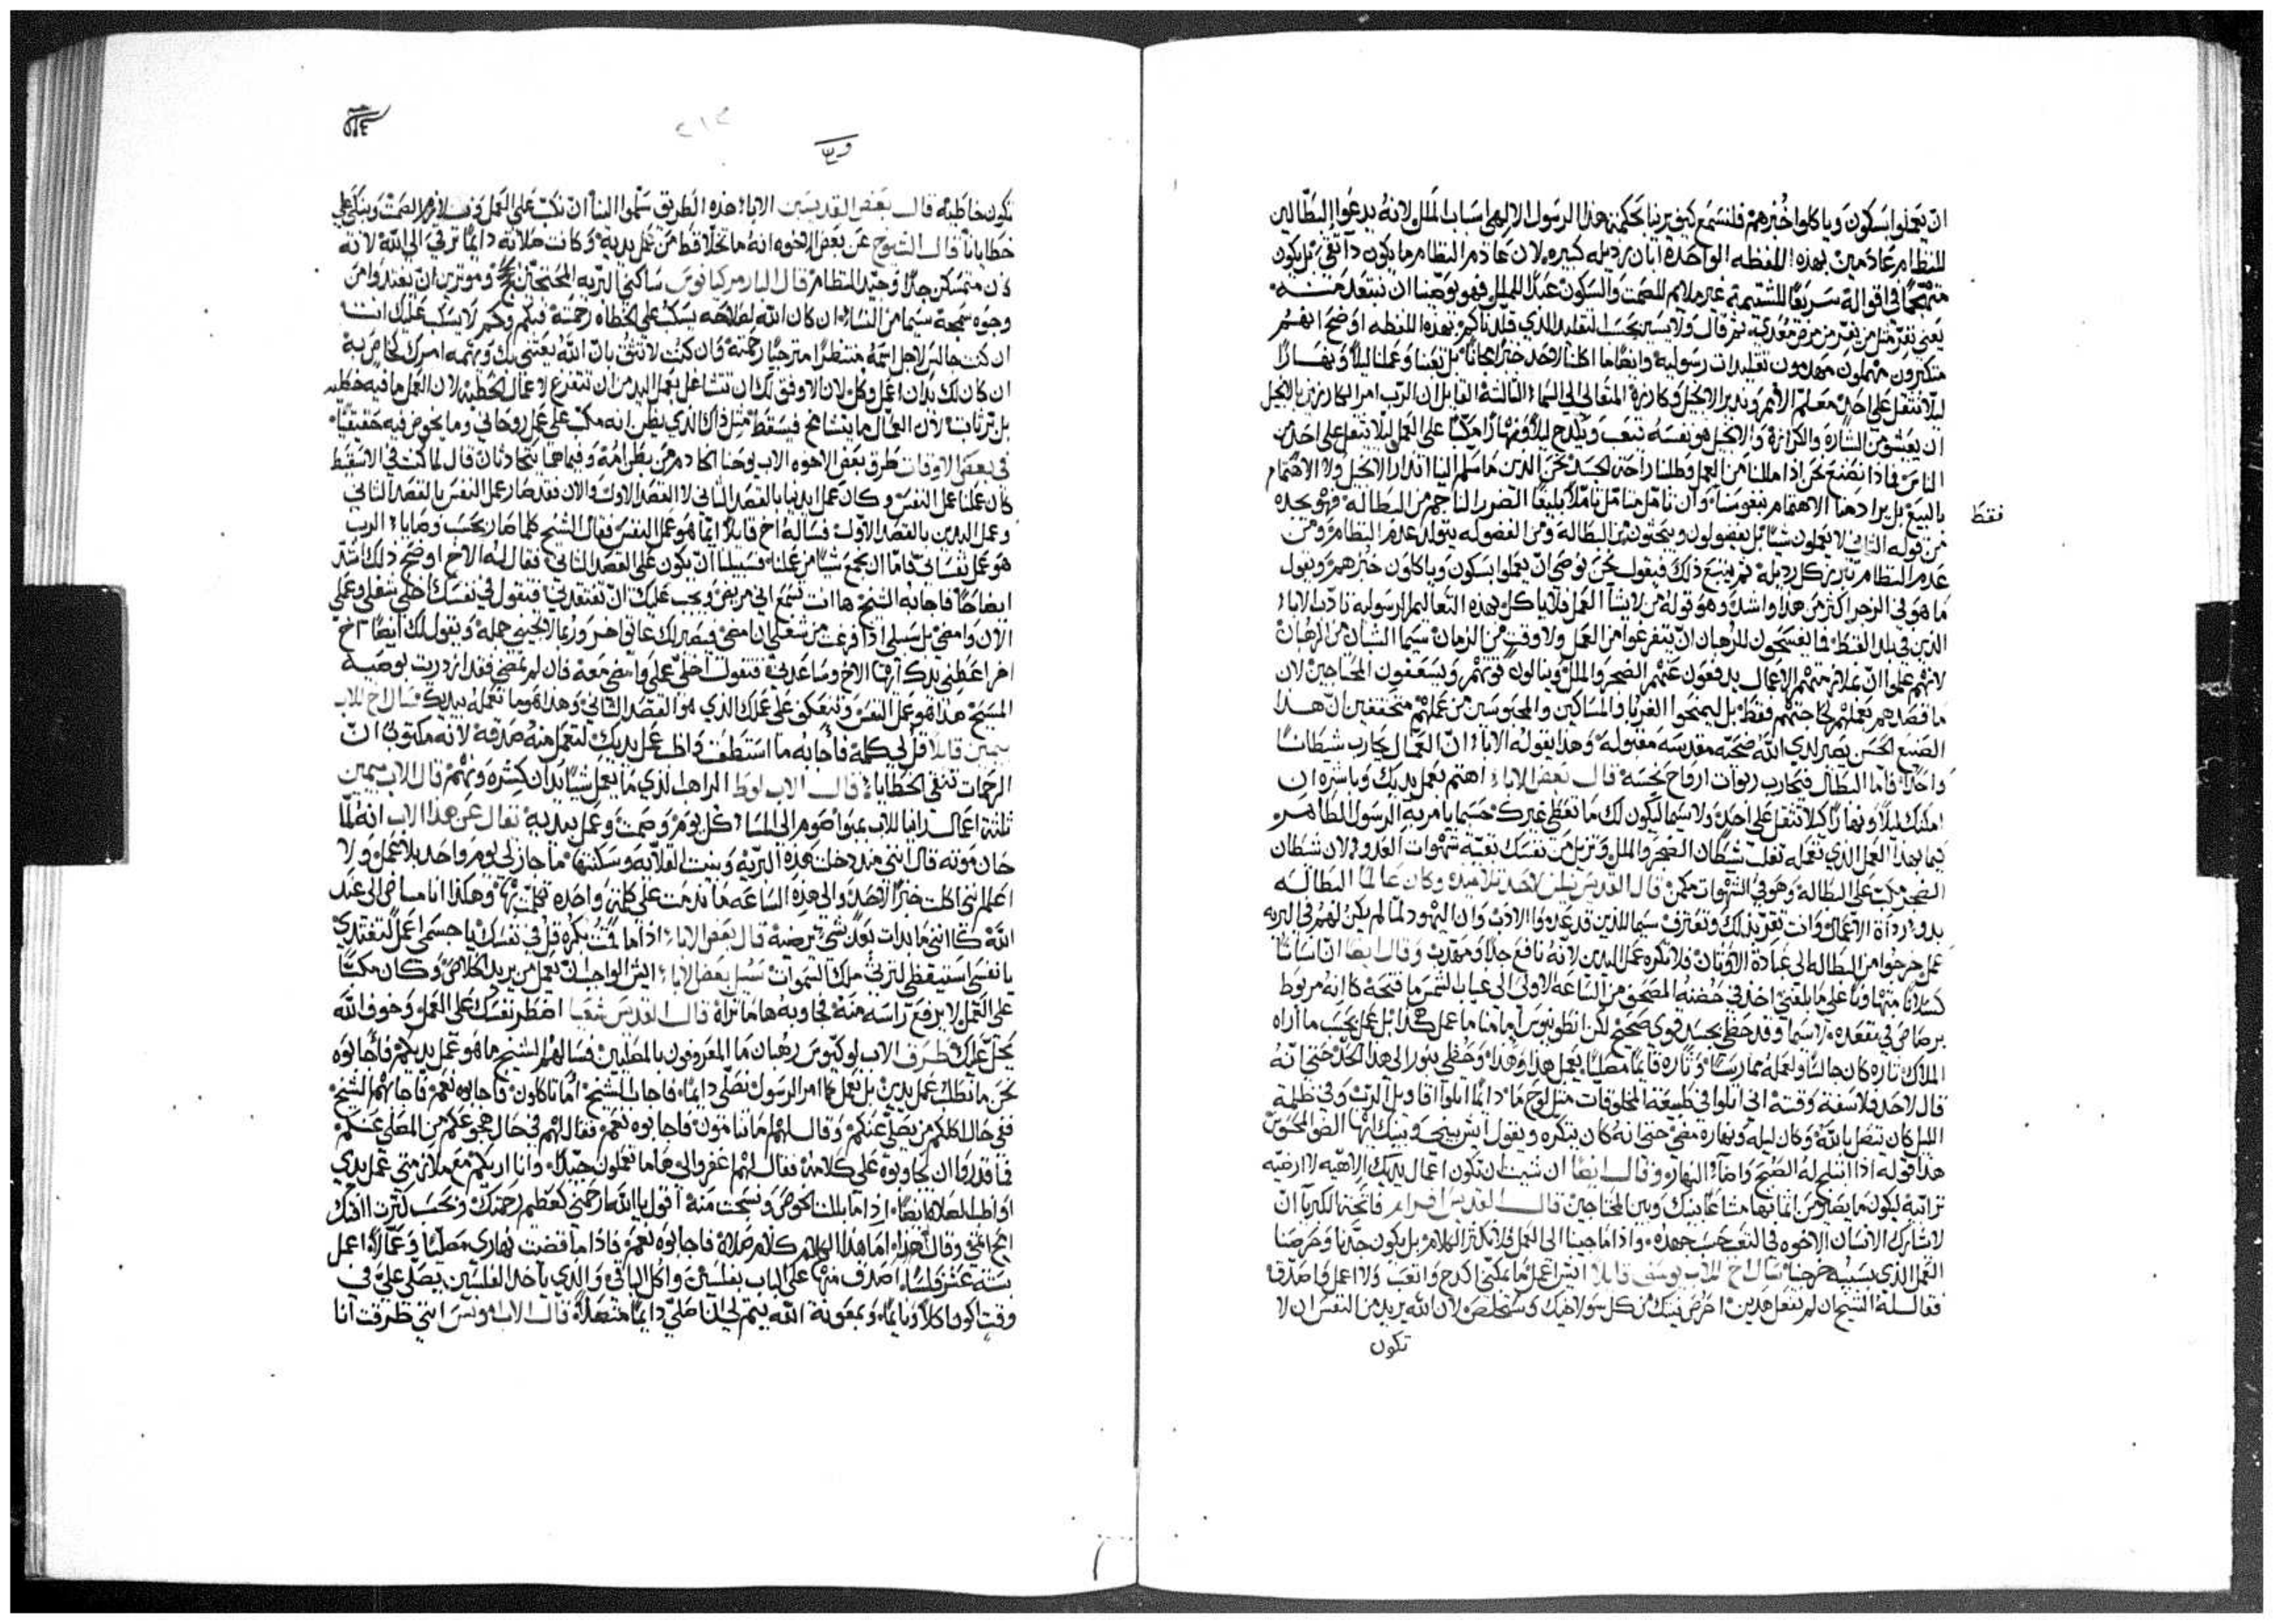 ان يعملوا بسكون وياكلوا خبزهم فلنسمع كيف يرينا بحكمته هذا الرسول الالهي اسباب الملل لانه يدعوا البطالين
للنظام عادمين بهذه اللفظه الواحده ابان رذيله كبيره لان عادم النظام ما يكون دا تقي بل يكون
في اقواله سريعًا للشتيمة غير ملايم للصمت والسكون عبدًا للملل فهو يوصينا ان نبتعد منه
يعني نفر مثل من يفر من مرض معدي ثم قال ولا يسير بحسب التقليد الذي قلدناكم بهذه اللفظه اوضح انهم
متكبرون مهملون تقليدات رسولية وايضًا ما اكلنا لاحد خبزًا مجانًا بل تعبنا وعملنا ليلًا ونهارًا
ليلا نثقل على احد معلم الامم ونذير الانجيل المتعالي الى السما الثالثة القايل ان الرب امر الكارزين بالانجيل
ان يعيشو من البشاره والكرازة والانجيل هو نفسه تعب وكدح ليلًا ونهارًا مكبًا على العمل ليلا يثقل على احد من
الناس فماذا نصنع نحن اذا مللنا من العمل وطلبنا راحة الجسد نحن الذين ما سلم الينا انذار الانجيل ولا الاهتمام
بالبيع بل يراد منا الاهتمام بنفوسنا وان تامل منا متامل تاملًا بليغًا الضرر الناجم من البطالة فهو يجده
فقط
من قوله التالي لا يعملون شيًا بل يفضولون ويبحثون من البطاله ومن الفضوله يتولد عدم النظام ومن
عدم النظام تبرز كل رذيله ثم يتبع ذلك فيقول نحن نوصي ان يعملوا بسكون وياكلون خبزهم ويقول
ما هو في الزجر اكثر من هذا واشد وهو قوله من لا يشا العمل فلا ياكل بهذه التعاليم الرسوليه تادب الابا
الذين في بلد القبط فما يفسحون للرهبان ان يتفرغوا من العمل ولا وقت من الزمان سيما الشبان من الرهبان
لانهم علموا ان بملازمتهم الاعمال يدفعون عنهم الضجر والملل وينالون قوتهم ويسعفون المحتاجين لان
ما قصدهم بعملهم لحاجتهم فقط بل ليمنحوا الغربا والمساكين والمحبوسين من عملهم متحققين ان هذا
الصنيع الحسن يصير لدي الله ضحية مقدسه مقبوله وهذا يقوله الابا ان العمال يحارب شيطانًا
واحدًا فاما البطال فتحارب ربوات ارواح نجسه قال بعض الابا اهتم بعمل يديك وباشره ان
امكنك ليلًا ونهارًا كيلا تثقل على احد ولا سيما ليكون لك ما تعطي غيرك حسبما يامر به الرسول الطاهر
كيما بهذا العمل الذي تعمله تغلب شيطان الضجر والملل وتزيل من نفسك بقية شهوات العدو لان شيطان
الضجر مكب على البطالة وهو في الشهوات مكمن قال القديس لاحد تلاميذه وكان عالمًا البطاله
بدو رداة الاعمال وانت تقر بذلك وتعترف سيما للذين قد عدموا الادب وان اليهود لما لم يكن لهم في البريه
عمل خرجوا من البطاله الى عبادة الاوثان فلا تكره عمل اليدين لانه نافع جدًا ومقدب وقال ايضًا ان انسانًا
كسلانًا متهاونًا على ما بلغني اخذ في حضنه المصحف من الساعه الاولى الى غياب الشمس ما فتحه كانه مربوط
برصاص في مقعده لا سيما وقد حظي بجسد قوي صحيح لكن انطونيوس ابانا ما عمل هكذا بل عمل بحسب ما اراه
الملاك تاره كان جالسًا ولعمله ممارسًا وتارة قايمًا مصليًا يعمل هذا وهذا وحظي بنور الى هذا الحد حتى انه
قال لاحد فلاسفة وقته اني اتلوا في طبيعة المخلوقات مثل لوح ما دايمًا اتلوا اقاويل الرب وفي ظلمة
الليل كان يتصل بالله وكان ليله ونهاره مضي حتى انه كان يتكره ويقول ايش بيني وبينك ايها الضو المحسوس
هذا قوله اذا انبلج له الصبح واضا النهار وقال ايضًا ان شيت ان تكون اعمال يديك الاهيه لا ارضيه
ترابية ليكون ما يصير من اثمانها مشاعًا بينك وبين المحتاجين قال القديس افرام فاتحة الكبريا ان
لا يشارك الانسان الاخوه في التعب حسب جهده واذا ما جينا الى العمل فلا نكثر الكلام بل يكون جدنا وحرصنا
العمل الذي بسببه خرجنا سال اخ الاب يوسف قايلًا ايش اعمل ما يمكنني اكدح واتعب ولا اعمل فاصدق
فقال له الشيخ ان لم تفعل هذين احرص نيتك من كل سو لاخيك وستخلص لان الله يريد من النفس ان لا
تكون
تكون خاطيه قال بعض القديسين الابا هذه الطريق سلموا الينا ان نكب على العمل ونلازم الصمت ونبكي على
خطايانا قال الشيوخ عن بعض الاخوه انه ما تخلا قط من عمل يديه وكانت صلاته دايمًا ترقي الى الله لانه
كان متمسكن جدًا وجيد النظام قال البار مركيانوس ساكني البريه وموثرين ان يغتدوا من
وجوه سمجة سيما من النسا ان كان الله لصلاحه يسكب على الخطاه رحمته فبكم وكم لا يسكب عليك انت
ان كنت جالس لاجل اسمه منتظرًا مترجيًا رحمته وان كنت لا تثق بان الله يعتني بك ويهتم امرك الخاص به
ان كان لك يدان اعمل وكل لان الاوفق لك ان تتشاغل بعمل اليد من ان تتفرغ لاعمال الخطيه لان العمل ما فيه خطيه
بل ترثاب لان العمال ما يتشامخ فيسقط مثل ذاك الذي يظن انه مكب على عمل روحاني وما يخوض فيه حقيقيًا
في بعض الاوقات طرق بعض الاخوه الاب يوحنا وفيما هما يتحادثان قال لما كنت في الاسقيط
كان عملنا عمل النفس وكان عمل ايدينا بالقصد الثاني لا القصد الاول والان فقد صار عمل النفس بالقصد الثاني
وعمل اليدين بالقصد الاول فساله اخ قايلًا ايما هو عمل النفس فقال الشيخ كلما صار بحسب وصايا الرب
هو عمل نفساني فاما ان نجمع شيًا من عملنا فسبيلنا ان يكون على القصد الثاني فقال له الاخ اوضح ذلك اشد
ايضاحًا فاجابه الشيخ ها انت تسمع اني مريض ويجب عليك ان تفتقدني فتقول في نفسك اخلي شغلي وعملي
الان وامضي بل سبيلي اذا فرغت من شغلي ان امضي فيصير لك عايق اخر وربما لا تجيني جمله ويقول لك ايضًا اخ
اخر اعطني يدك ايها الاخ وساعدني فتقول اخلي عملي وامضي معه فان لم تمضي فقد ازدريت بوصية
المسيح هذا هو عمل النفس وتنعكف على عملك الذي هو القصد الثاني وهذا هو ما تعمله بيديك سال اخ للاب
بيمين قايلًا قل لي كلمة فاجابه ما استطعت واظب عمل يديك لتعمل منه صدقة لانه مكتوب ان
الرحمات تنقي الخطايا قال الاب لوط الراهب الذي ما يعمل شيًا يدان كشره ونهم قال الاب بيمين
ثلثة اعمال راينا للاب بمبوا صوم الى المسا كل يوم وصمت وعمل بيديه نقال عن هذا الاب انه لما
حان موته قال انني منذ دخلت هذه البرية وبنيت القلايه وسكنتها ما جاز لي يوم واحد بلا عمل ولا
اعلم انني اكلت خبزًا لاحد والى هذه الساعه ما ندمت على كلمة واحده تكلمت بها وهكذا انا ماض الى عند
الله كانني ما بدات بعد بشي يرضيه قال بعض الابا اذا ما قمت بكره قل في نفسك يا جسم اعمل لتغتدي
يا نفس استيقظي لترثي ملك السموات سيل بعض الابا ايش الواجب ان يعمل من يريد الخلاص وكان مكبًا
على العمل لا يرفع راسه منه فجاوبه ها ما تراه قال القديس شعيا اضطر نفسك على العمل وخوف الله
يحل عليك طرف الاب لوكيوس رهبان ما المعروفون بالمصلين فسالهم الشيخ ما هو عمل يديكم فاجابوه
نحن ما نطلب عمل يدين بل نعمل كما امر الرسول نصلي دايمًا فاجاب الشيخ اما تاكلون فاجابوه نعم فاجابهم الشيخ
ففي حال اكلكم من يصلي عنكم وقال لهم ما تنامون فاجابوه نعم فقال لهم في حال هجوعكم من المصلي عنكم
فما قدروا ان يجاوبوه على كلامه فقال لهم اغفروا لي ها ما تعملون جيدًا وانا اريكم مع ملازمتي عمل يدي
اواظب الصلاة ايضًا اذا ما بللت الخوص ونسجت منه اقول يا الله ارحمني كعظيم رحمتك وبحسب كثرت رافتك
امح اثمي وقال لهم اما هذا الكلام كلام صلاة فاجابوه نعم فاذا ما قضيت نهاري مصليًا وعمالًا اعمل
بستة عشر فلسًا اصدف منها على الباب بفلسين واكل الباقي والذي ياخد الفلسين يصلي علي في
وقت اكون اكلًا ونايمًا وبمعونة الله يتم لي ان اصلي دايمًا متصلًا قال الاب مويس انني طرقت انا